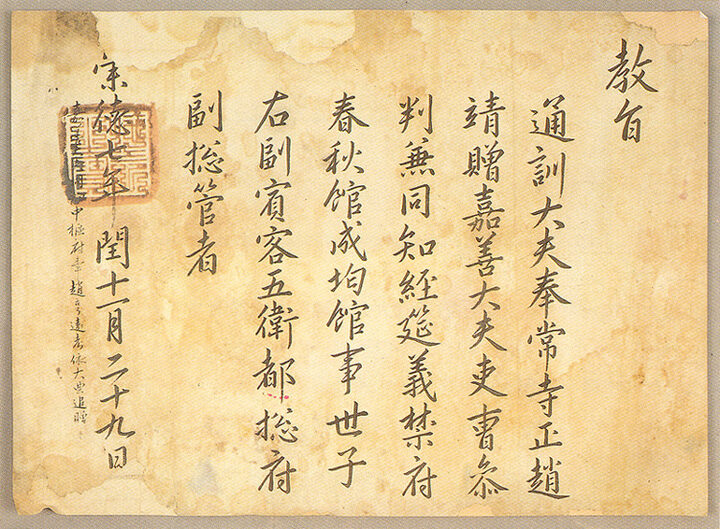 教旨
通訓大夫奉常寺正趙
靖贈嘉善大夫吏曹叅
判兼同知經筵義禁府
春秋館成均館事世子
右副賓客五衛都摠府
副摠管者
崇德七年閏十一月二十九日
中樞府事趙遠考依大典追贈